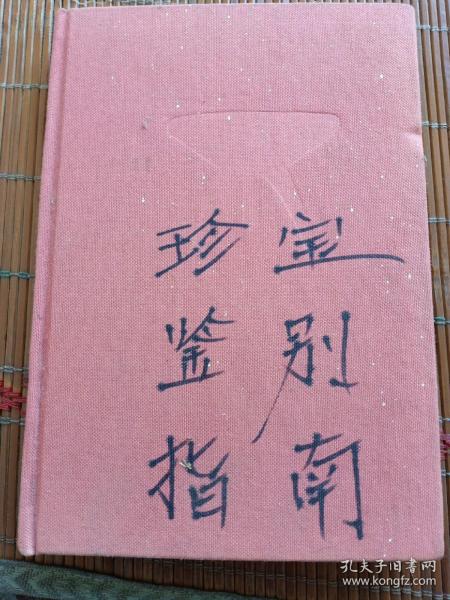 珍宝
鉴别
指南
孔夫子旧书网
www.kongfz.com